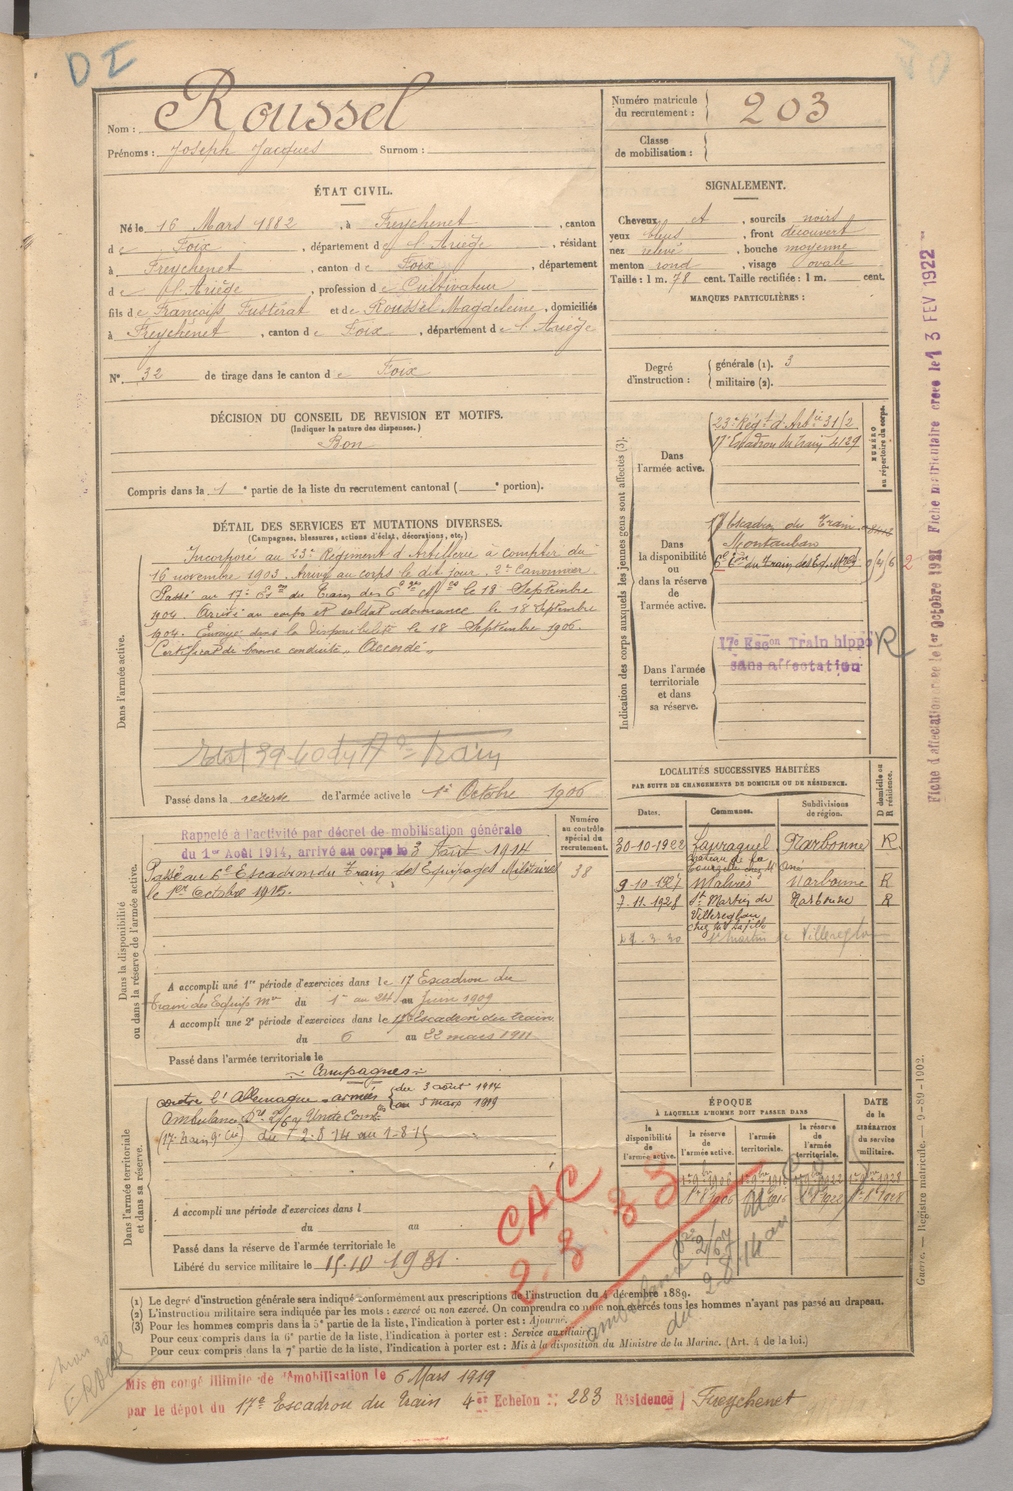 DI
Nom : Roussel
Prénoms : Joseph Jacques Surnom :
Numéro matricule du recrutement : 203
Classe de mobilisation :
ÉTAT CIVIL.
Né le 16 Mars 1882, à Freychenet, canton
de Foix, département de l'Ariège, résidant
à Freychenet, canton de Foix, département
de l'Ariège, profession de Cultivateur
fils de François Fustérat et de Roussel Magdeleine, domiciliés
à Freychenet, canton de Foix, département de l'Ariège
N° 32 de tirage dans le canton de Foix
SIGNALEMENT.
Cheveux et, sourcils noirs
yeux bleus, front découvert
nez relevé, bouche moyenne
menton rond, visage ovale
Taille : 1 m. 78 cent. Taille rectifiée : 1 m. cent.
MARQUES PARTICULIÈRES :
Degré d'instruction : générale (1). 3
militaire (2).
DÉCISION DU CONSEIL DE REVISION ET MOTIFS.
(Indiquer la nature des dispenses.)
Bon
Compris dans la 1e partie de la liste du recrutement cantonal ( e portion).
DÉTAIL DES SERVICES ET MUTATIONS DIVERSES.
(Campagnes, blessures, actions d'éclat, décorations, etc.)
Dans l'armée active.
Incorporé au 23e Régiment d'Artillerie à compter du
16 novembre 1903. Arrivé au corps le dit jour. 2e Canonnier
Passé au 17e du Train des le 18 Septembre
1904. Arrivé au corps et soldat ordonnance le 18 Septembre
1904. Envoyé dans la disponibilité le 18 Septembre 1906.
Certificat de bonne conduite "Accordé"
39-40 du 17e Train
Passé dans la réserve de l'armée active le 1er Octobre 1906
Indication des corps auxquels les jeunes gens sont affectés (3).
NUMÉRO au répertoire du corps.
Dans l'armée active.
23e Régt d'Artie 31/2
17e Escadron du Train 4129
Dans la disponibilité ou dans la réserve de l'armée active.
17 Escadron du Train
Montauban
6e du Train des Eq. Mres
Dans l'armée territoriale et dans sa réserve.
17e Escon Train hippo R
sans affectation
Fiche d'affectation créée le 1er Octobre 1921 Fiche matriculaire créée le 13 FEV 1922
Dans la disponibilité ou dans la réserve de l'armée active.
Numéro au contrôle spécial du recrutement.
38
Rappelé à l'activité par décret de mobilisation générale
du 1er Août 1914, arrivé au corps le 3 Août 1914
Passé au 6e Escadron du Train des Equipages Militaires
le 1er Octobre 1915.
A accompli une 1re période d'exercices dans le 17 Escadron du
Train des Equip. Mres du 1er au 24 Juin 1909
A accompli une 2e période d'exercices dans le 17e Escadron du Train
du 6 au 22 mars 1911
Passé dans l'armée territoriale le
Campagnes
LOCALITÉS SUCCESSIVES HABITÉES
PAR SUITE DE CHANGEMENTS DE DOMICILE OU DE RÉSIDENCE.
Dates. Communes. Subdivisions de région. D domicile ou R résidence.
30-10-1922 Narbonne R
9-10-1927 Narbonne R
7-11-1928 St Martin de Villereglan Narbonne R
St Martin de Villereglan
Dans l'armée territoriale et dans sa réserve.
contre l'Allemagne armées du 3 août 1914
au 5 mars 1919
Ambulance 2/67
(17e Train 9e Cie) du 2-8-14 au 1-8-15
A accompli une période d'exercices dans l
du au
Passé dans la réserve de l'armée territoriale le
Libéré du service militaire le 15.10.1931.
CAC
2.3.33
ÉPOQUE
À LAQUELLE L'HOMME DOIT PASSER DANS
la disponibilité de l'armée active. la réserve de l'armée active. l'armée territoriale. la réserve de l'armée territoriale.
DATE de la LIBÉRATION du service militaire.
Guerre. — Registre matricule. — 9-89-1902.
(1) Le degré d'instruction générale sera indiqué conformément aux prescriptions de l'instruction du 4 décembre 1889.
(2) L'instruction militaire sera indiquée par les mots : exercé ou non exercé. On comprendra comme non exercés tous les hommes n'ayant pas passé au drapeau.
(3) Pour les hommes compris dans la 5e partie de la liste, l'indication à porter est : Ajourné.
Pour ceux compris dans la 6e partie de la liste, l'indication à porter est : Service auxiliaire
Pour ceux compris dans la 7e partie de la liste, l'indication à porter est : Mis à la disposition du Ministre de la Marine. (Art. 4 de la loi.)
Mis en congé illimité de démobilisation le 6 Mars 1919
par le dépôt du 17e Escadron du Train 4e Echelon N° 283 Résidence Freychenet